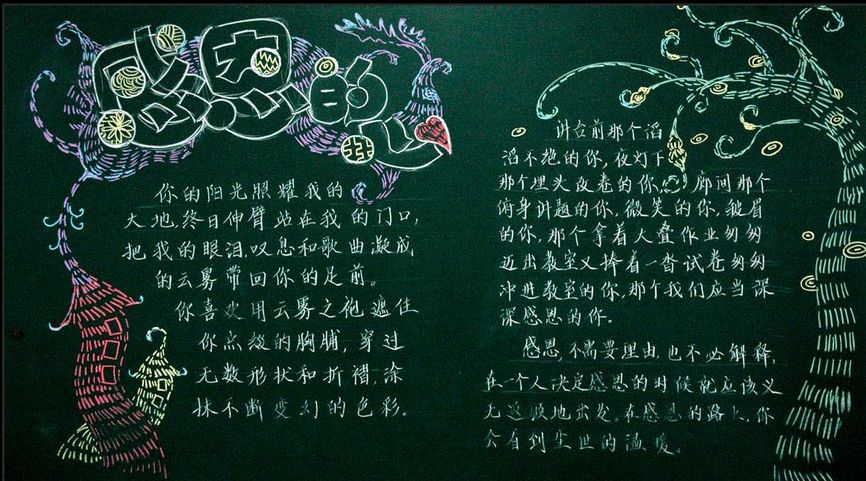 你的阳光照耀我的
大地,终日伸臂站在我的门口,
把我的眼泪,叹息和歌曲凝成
的云雾带回你的足前。
你喜欢用云雾之袍遮住
你点缀的胸脯,穿过
无数形状和折褶,涂
抹不断变幻的色彩。
讲台前那个滔
滔不绝的你,夜灯下
那个埋头改卷的你,廊间那个
俯身讲题的你,微笑的你,皱眉
的你,那个拿着大叠作业匆匆
迈出教室又捧着一沓试卷匆匆
冲进教室的你,那个我们应当深
深感恩的你。
感恩,不需要理由,也不必解释,
在一个人决定感恩的时候就应该义
无返顾地出发。在感恩的路上,你
会看到生世的温暖。